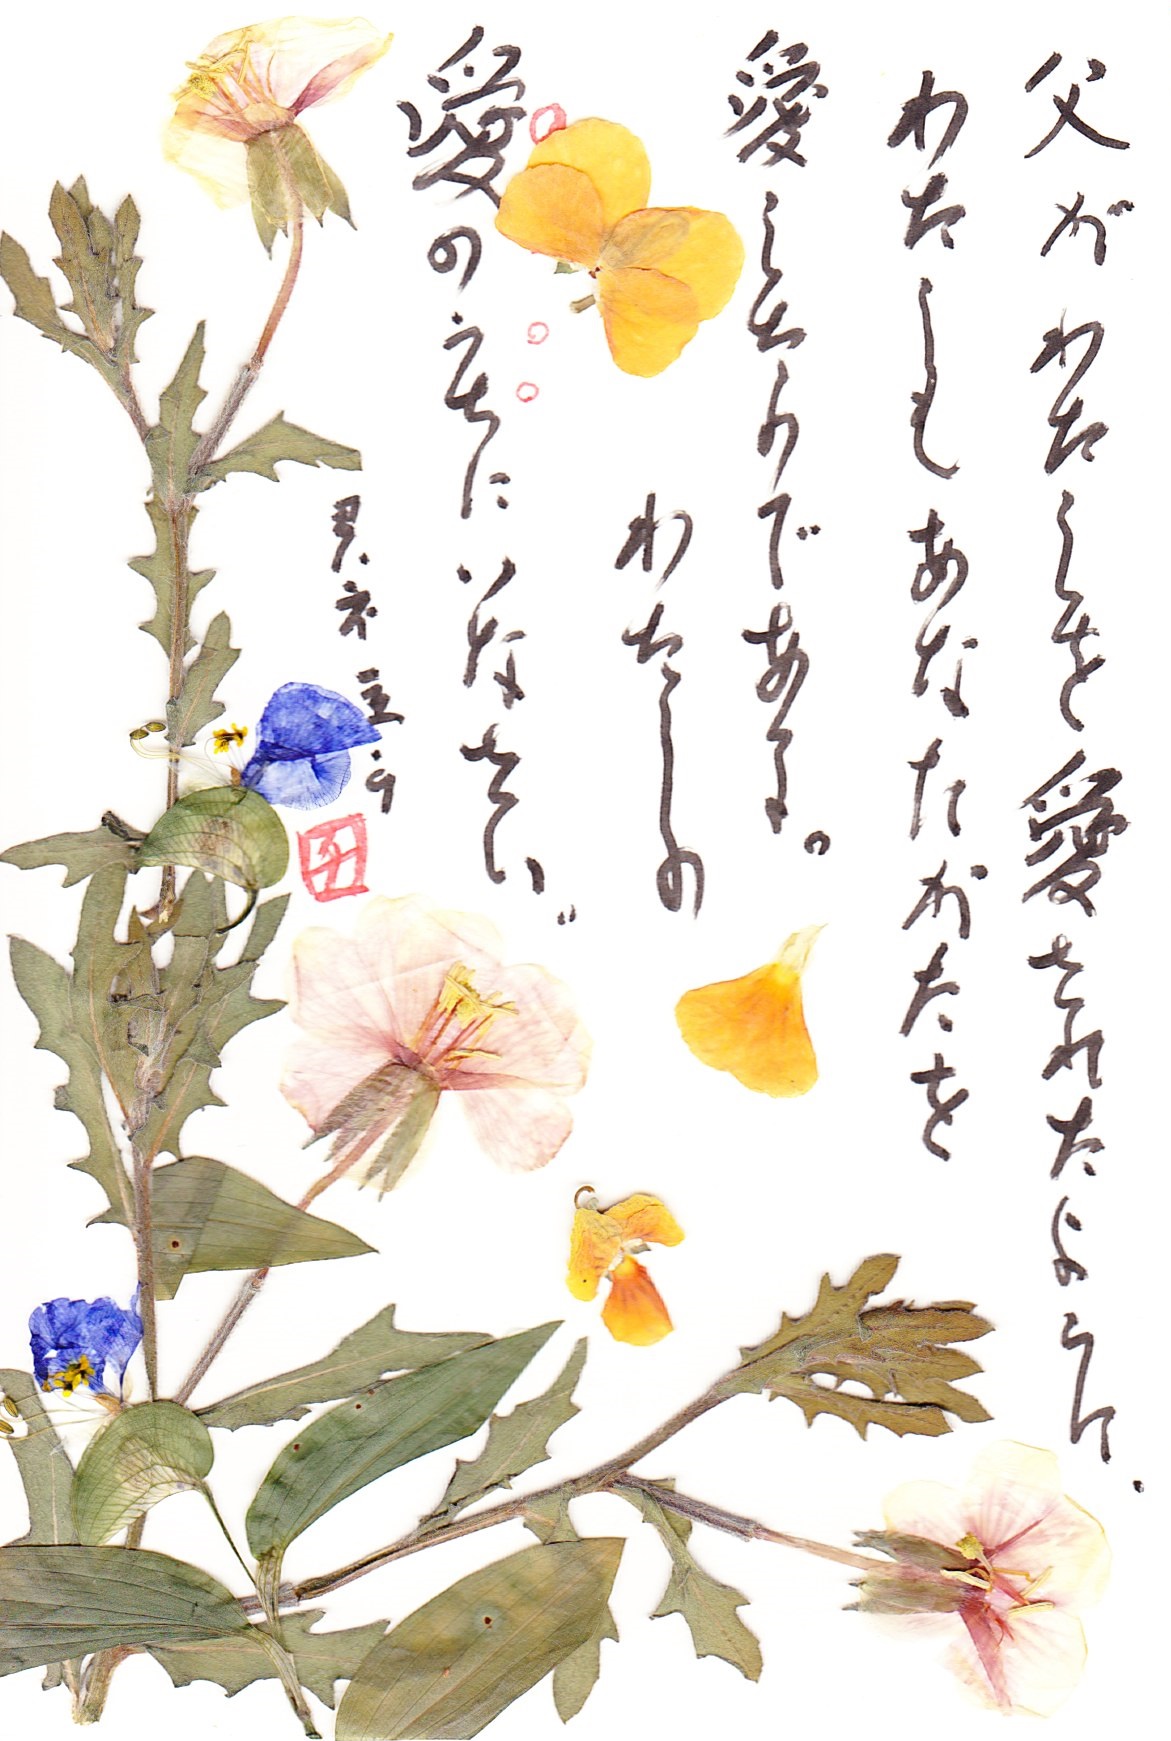 父がわたしを愛されたように.
わたしもあなたがたを
愛したのである。
わたしの
愛のうちにいなさい。
ヨハネ 十五・9